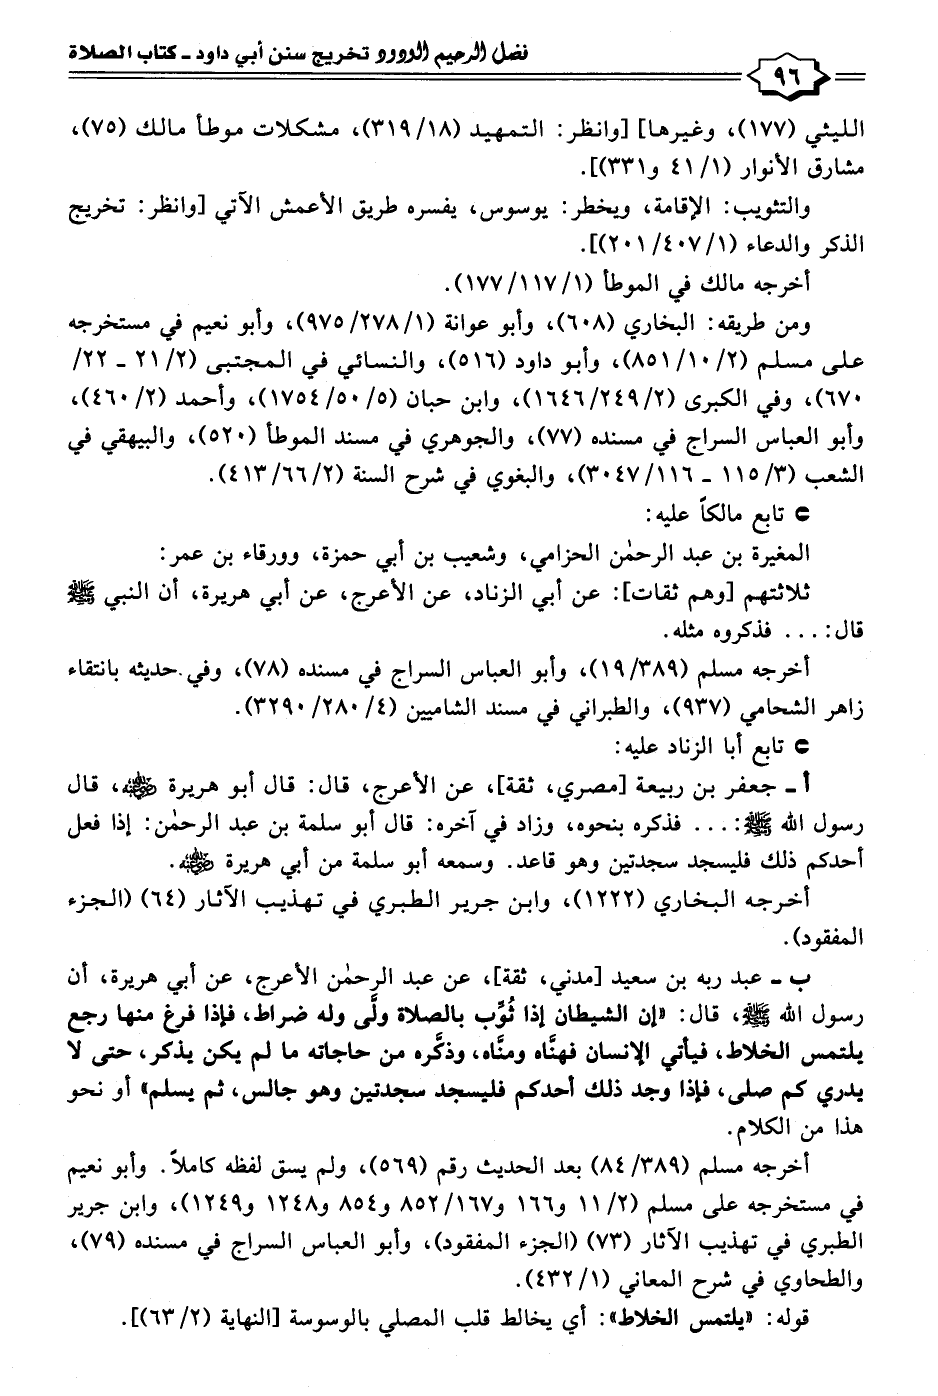 فضل الرحيم الودود تخريج سنن أبي داود ـ كتاب الصلاة
٩٦
الليثي (١٧٧)، وغيرها] [وانظر: التمهيد (٣١٩/١٨)، مشكلات موطأ مالك (٧٥)،
مشارق الأنوار (٤١/١ و٣٣١)].
والتثويب: الإقامة، ويخطر: يوسوس، يفسره طريق الأعمش الآتي [وانظر: تخريج
الذكر والدعاء (٢٠١/٤٠٧/١)].
أخرجه مالك في الموطأ (١٧٧/١١٧/١).
ومن طريقه: البخاري (٦٠٨)، وأبو عوانة (٩٧٥/٢٧٨/١)، وأبو نعيم في مستخرجه
على مسلم (٨٥١/١٠/٢)، وأبو داود (٥١٦)، والنسائي في المجتبى (٢١/٢ ـ ٢٢/
٦٧٠)، وفي الكبرى (١٦٤٦/٢٤٩/٢)، وابن حبان (١٧٥٤/٥٠/٥)، وأحمد (٤٦٠/٢)،
وأبو العباس السراج في مسنده (٧٧)، والجوهري في مسند الموطأ (٥٢٠)، والبيهقي في
الشعب (١١٥/٣ ـ ٣٠٤٧/١١٦)، والبغوي في شرح السنة (٤١٣/٦٦/٢).
تابع مالكاً عليه:
المغيرة بن عبد الرحمٰن الحزامي، وشعيب بن أبي حمزة، وورقاء بن عمر:
ثلاثتهم [وهم ثقات]: عن أبي الزناد، عن الأعرج، عن أبي هريرة، أن النبي ﷺ
قال: ... فذكروه مثله.
أخرجه مسلم (١٩/٣٨٩)، وأبو العباس السراج في مسنده (٧٨)، وفي حديثه بانتقاء
زاهر الشحامي (٩٣٧)، والطبراني في مسند الشاميين (٣٢٩٠/٢٨٠/٤).
تابع أبا الزناد عليه:
أ ـ جعفر بن ربيعة [مصري، ثقة]، عن الأعرج، قال: قال أبو هريرة رضي الله عنه، قال
رسول الله ﷺ: ... فذكره بنحوه، وزاد في آخره: قال أبو سلمة بن عبد الرحمٰن: إذا فعل
أحدكم ذلك فليسجد سجدتين وهو قاعد. وسمعه أبو سلمة من أبي هريرة رضي الله عنه.
أخرجه البخاري (١٢٢٢)، وابن جرير الطبري في تهذيب الآثار (٦٤) (الجزء
المفقود).
ب ـ عبد ربه بن سعيد [مدني، ثقة]، عن عبد الرحمٰن الأعرج، عن أبي هريرة، أن
رسول الله ﷺ، قال: «إن الشيطان إذا ثُوِّب بالصلاة ولَّى وله ضراط، فإذا فرغ منها رجع
يلتمس الخلاط، فيأتي الإنسان فهنَّاه ومنَّاه، وذكَّره من حاجاته ما لم يكن يذكر، حتى لا
يدري كم صلى، فإذا وجد ذلك أحدكم فليسجد سجدتين وهو جالس، ثم يسلم» أو نحو
هذا من الكلام.
أخرجه مسلم (٨٤/٣٨٩) بعد الحديث رقم (٥٦٩)، ولم يسق لفظه كاملاً. وأبو نعيم
في مستخرجه على مسلم (١١/٢ و١٦٦ و٨٥٢/١٦٧ و٨٥٤ و١٢٤٨ و١٢٤٩)، وابن جرير
الطبري في تهذيب الآثار (٧٣) (الجزء المفقود)، وأبو العباس السراج في مسنده (٧٩)،
والطحاوي في شرح المعاني (٤٣٢/١).
قوله: «يلتمس الخلاط»: أي يخالط قلب المصلي بالوسوسة [النهاية (٦٣/٢)].